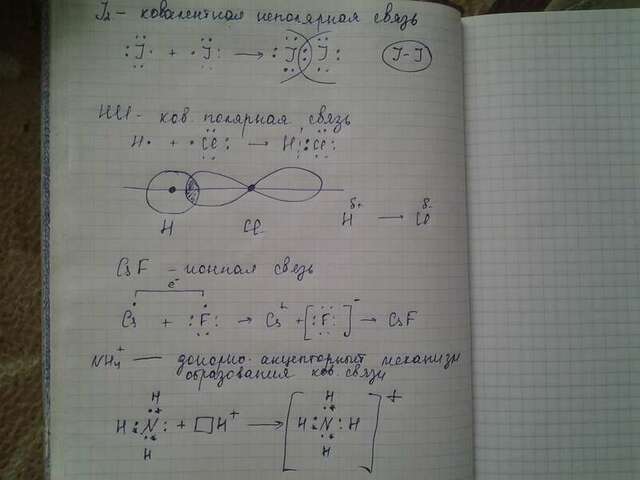 J₂ - ковалентная неполярная связь
:J· + ·J: → :J:J: J-J
HCl - ков. полярная связь
H· + ·Cl: → H:Cl:
H Cl
δ+ δ-
H → Cl
CsF - ионная связь
e⁻
Cs + :F: → Cs⁺ + [:F:]⁻ → CsF
NH₄⁺ — донорно-акцепторный механизм
образования ков. связи
H
H:N: + □H⁺ → [H:N:H]⁺
H
H
H